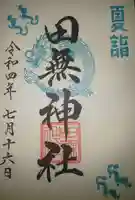 夏詣
田無神社
令和四年
七月十六日